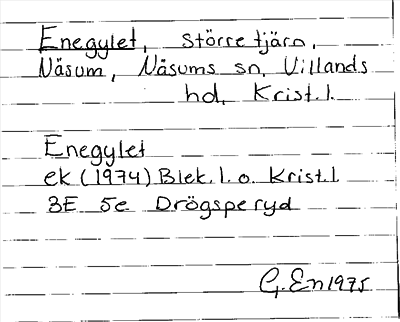 Enegylet, större tjärn,
Näsum, Näsums sn, Villands
hd, Krist. l.
Enegylet
ek (1974) Blek. l. o. Krist. l
3E 5e Drögsperyd
G. En 1975